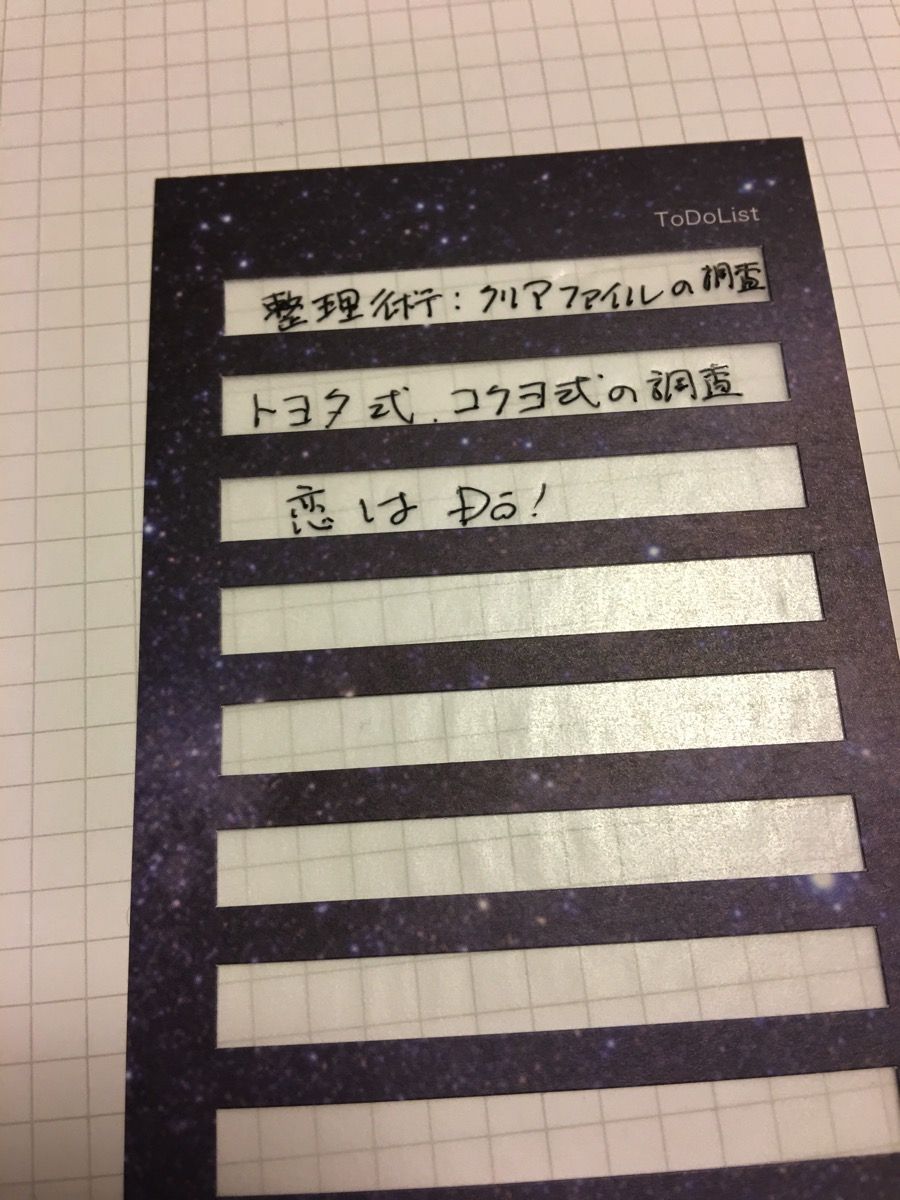 ToDoList
整理術:クリアファイルの調査
トヨタ式.コクヨ式の調査
恋は Dō!